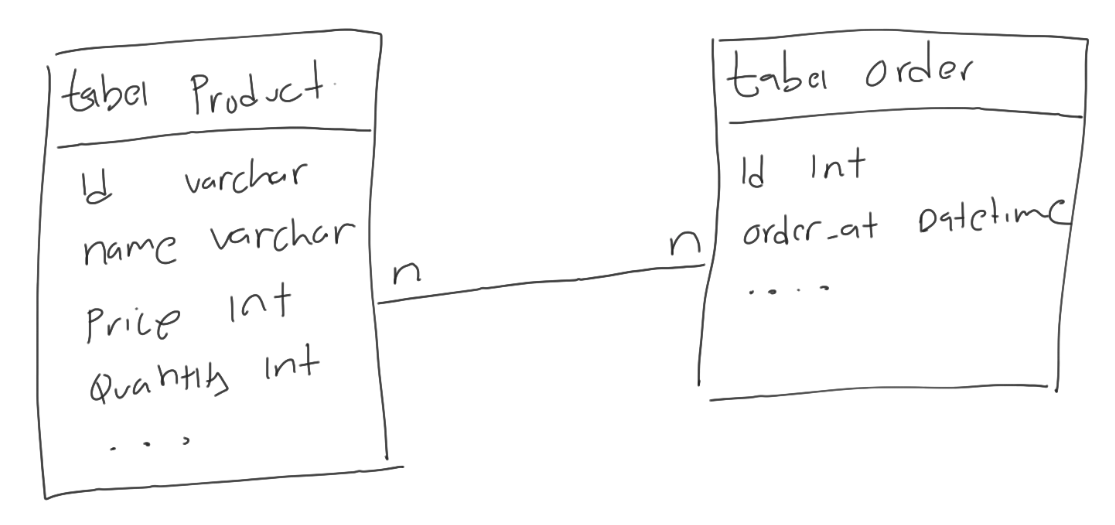 tabel Product
Id varchar
name varchar
Price Int
Quantity Int
....
n
n
tabel order
Id Int
order_at Datetime
....